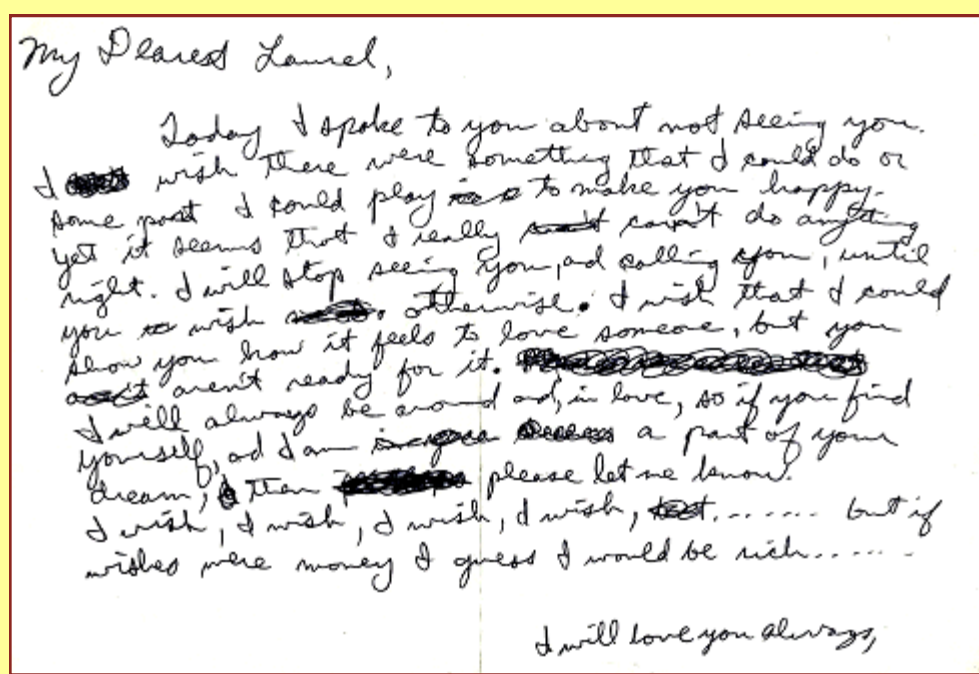 My Dearest Laurel,
Today I spoke to you about not seeing you.
I wish there were something that I could do or
some part I could play to make you happy.
yet it seems that I really can't do anything
right. I will stop seeing you, ad calling you, until
you wish otherwise. I wish that I could
show you how it feels to love someone, but you
aren't ready for it.
I will always be around ad, in love, so if you find
yourself, ad I am a part of your
dream, then please let me know.
I wish, I wish, I wish, I wish, ....... but if
wishes were money I guess I would be rich......
I will love you always,